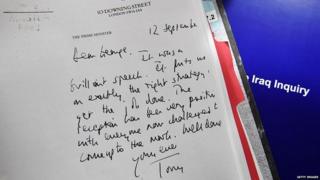 10 DOWNING STREET
LONDON SW1A 2AA
THE PRIME MINISTER
12 September
Dear George,
It was a
brilliant speech. It puts us
on exactly the right strategy:
get the job done. The
reception has been very positive
with everyone now challenged to
come up to the mark. Well done
Yours ever
Tony
2.2
e Iraq Inquiry
GETTY IMAGES